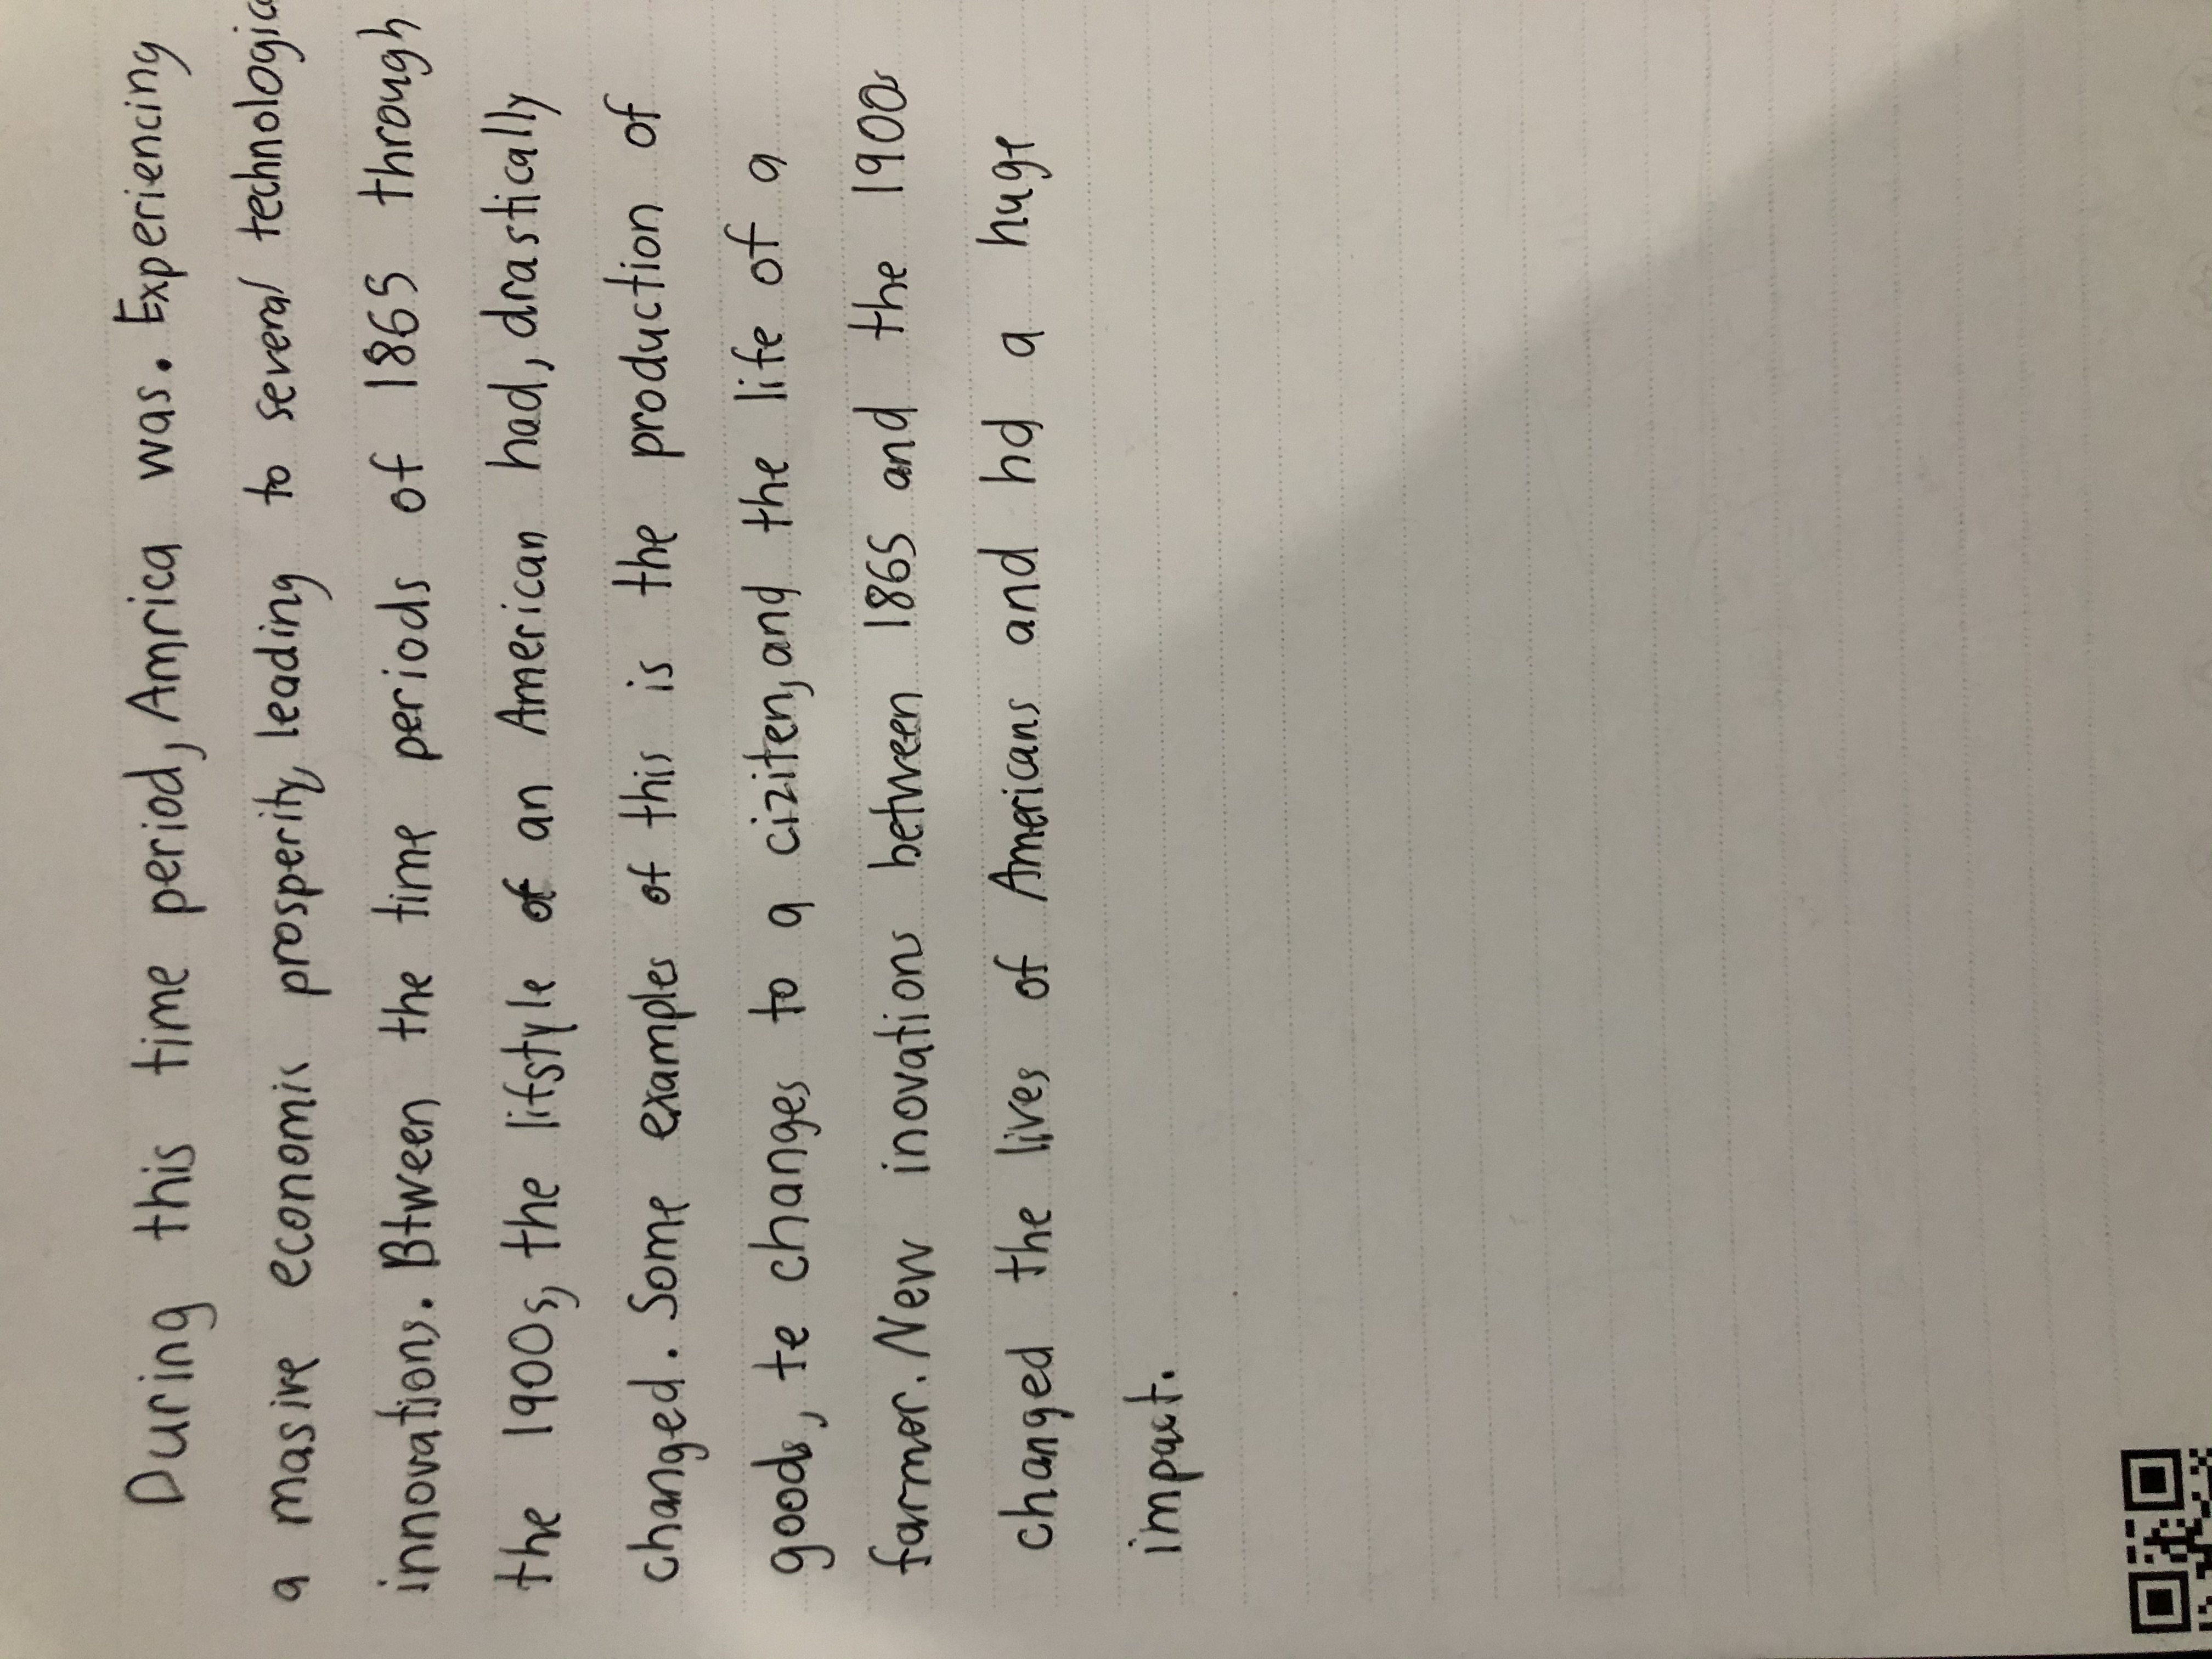 During this time period, Amrica was. Experiencing
a masive economic prosperity, leading to several technologic
innovations. Btween the time periods of 1865 through
the 1900s, the lifstyle of an American had, drastically
changed. Some examples of this is the production of
goods, te changes to a ciziten, and the life of a
farmer. New inovations between 1865 and the 1900s
changed the lives of Americans and hd a huge
impact.